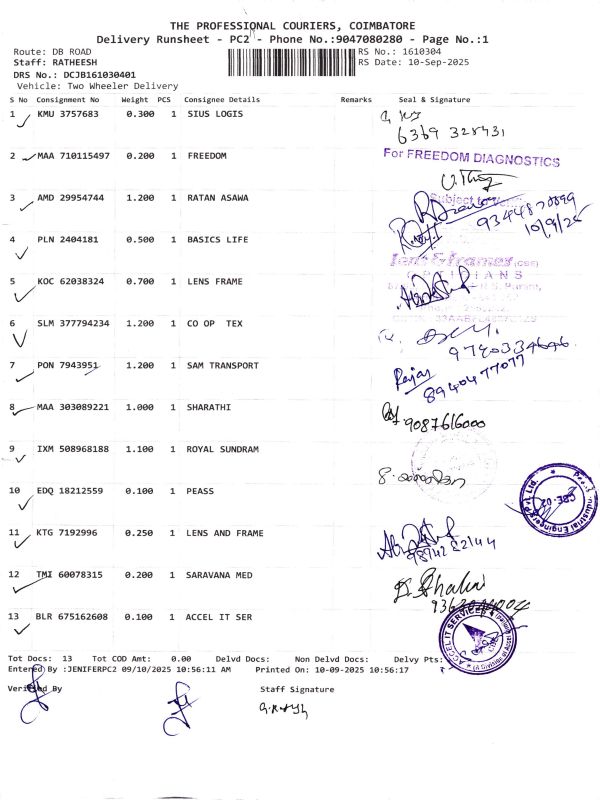 THE PROFESSIONAL COURIERS, COIMBATORE
Delivery Runsheet - PC2 - Phone No.:9047080280 - Page No.:1
Route: DB ROAD RS No.: 1610304
Staff: RATHEESH RS Date: 10-Sep-2025
DRS No.: DCJB161030401
Vehicle: Two Wheeler Delivery
S No Consignment No Weight PCS Consignee Details Remarks Seal & Signature
1 KMU 3757683 0.300 1 SIUS LOGIS
6369 328431
2 MAA 710115497 0.200 1 FREEDOM For FREEDOM DIAGNOSTICS
3 AMD 29954744 1.200 1 RATAN ASAWA
Subject to
9344878899
10/9/25
4 PLN 2404181 0.500 1 BASICS LIFE
OPTICIANS
5 KOC 62038324 0.700 1 LENS FRAME
6 SLM 377794234 1.200 1 CO OP TEX
9790334646
7 PON 7943951 1.200 1 SAM TRANSPORT
8940477077
8 MAA 303089221 1.000 1 SHARATHI
9087616000
9 IXM 508968188 1.100 1 ROYAL SUNDRAM
10 EDQ 18212559 0.100 1 PEASS
Industrial Engineers Pvt Ltd.
11 KTG 7192996 0.250 1 LENS AND FRAME
12 TMI 60078315 0.200 1 SARAVANA MED
13 BLR 675162608 0.100 1 ACCEL IT SER
ACCEL IT SERVICES
(A Division of Accel
Tot Docs: 13 Tot COD Amt: 0.00 Delvd Docs: Non Delvd Docs: Delvy Pts:
Entered By :JENIFERPC2 09/10/2025 10:56:11 AM Printed On: 10-09-2025 10:56:17
Verified By Staff Signature